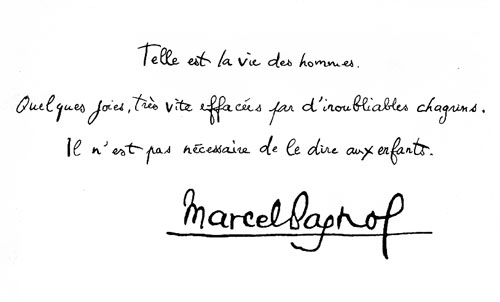 Telle est la vie des hommes.
Quelques joies, très vite effacées par d'inoubliables chagrins.
Il n'est pas nécessaire de le dire aux enfants.
Marcel Pagnol